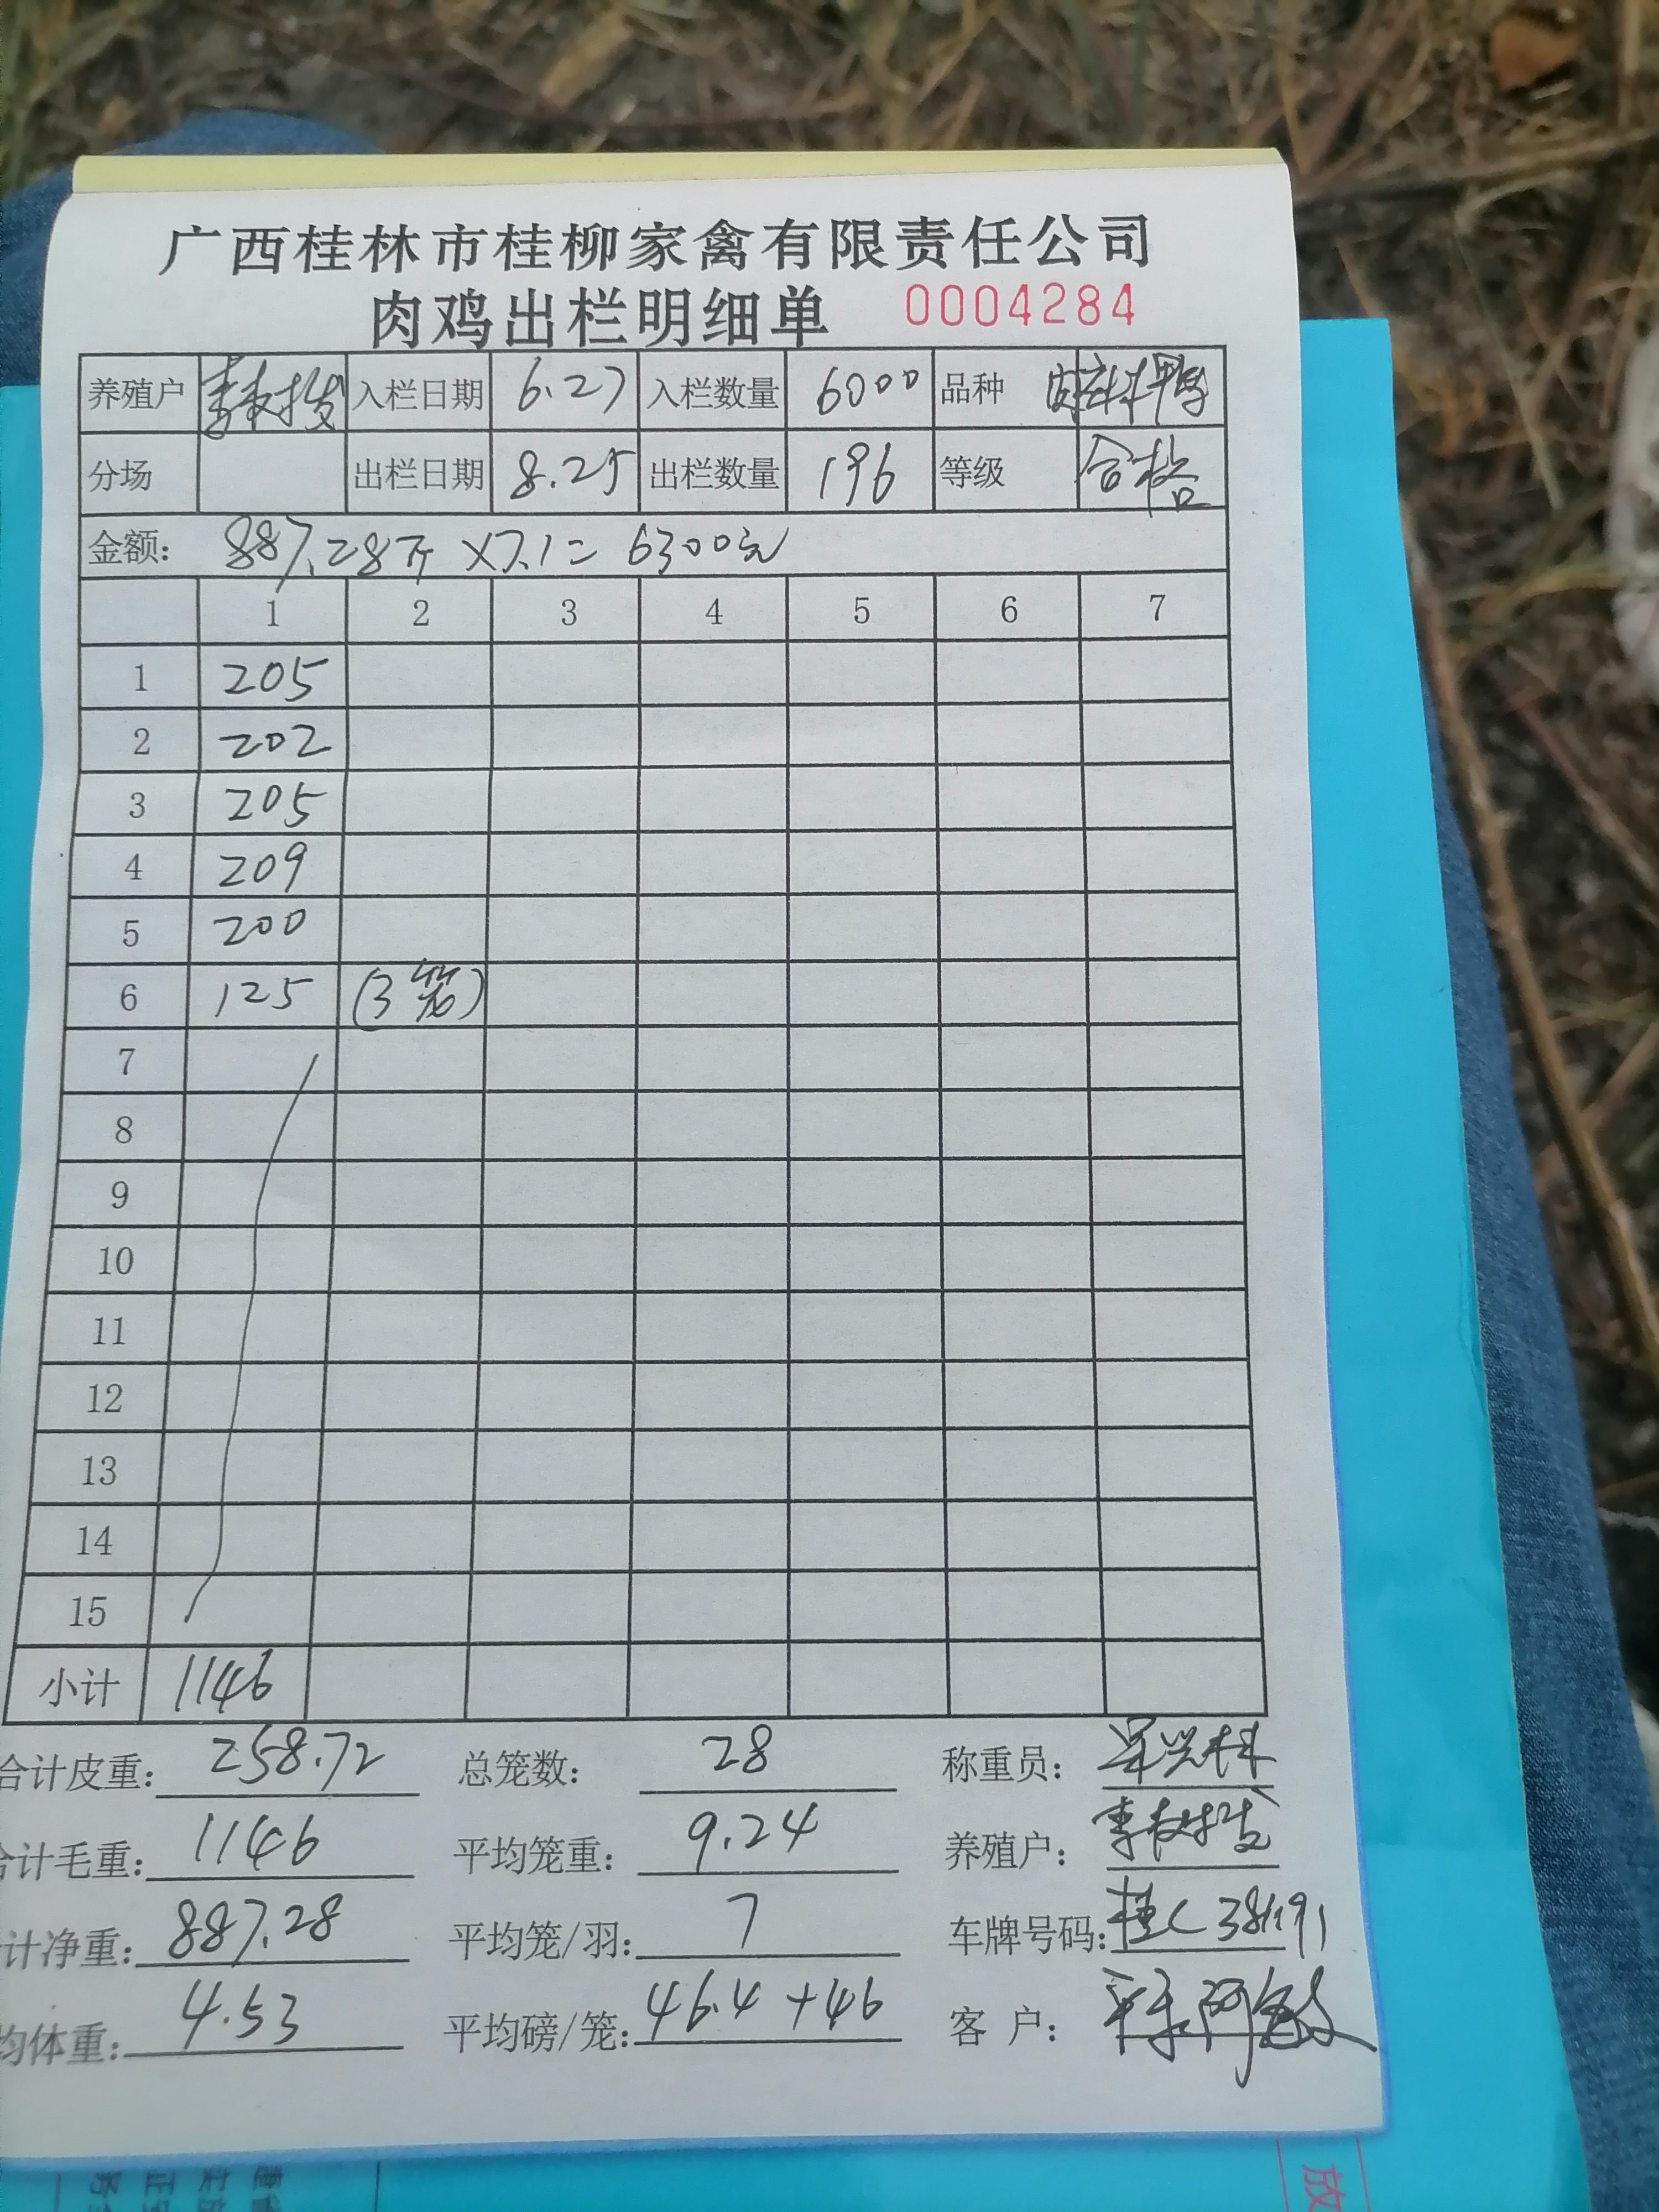 广西桂林市桂柳家禽有限责任公司
肉鸡出栏明细单 0004284
养殖户 入栏日期 6.27 入栏数量 6000 品种
分场 出栏日期 8.25 出栏数量 196 等级 合格
金额: 887.28斤 ×7.1= 6300元
1 2 3 4 5 6 7
1 205
2 202
3 205
4 209
5 200
6 125 (3笼)
7
8
9
10
11
12
13
14
15
小计 1146
合计皮重: 258.72 总笼数: 28 称重员:
合计毛重: 1146 平均笼重: 9.24 养殖户:
计净重: 887.28 平均笼/羽: 7 车牌号码: 桂C
均体重: 4.53 平均磅/笼: 46.4 +46 客 户:
放